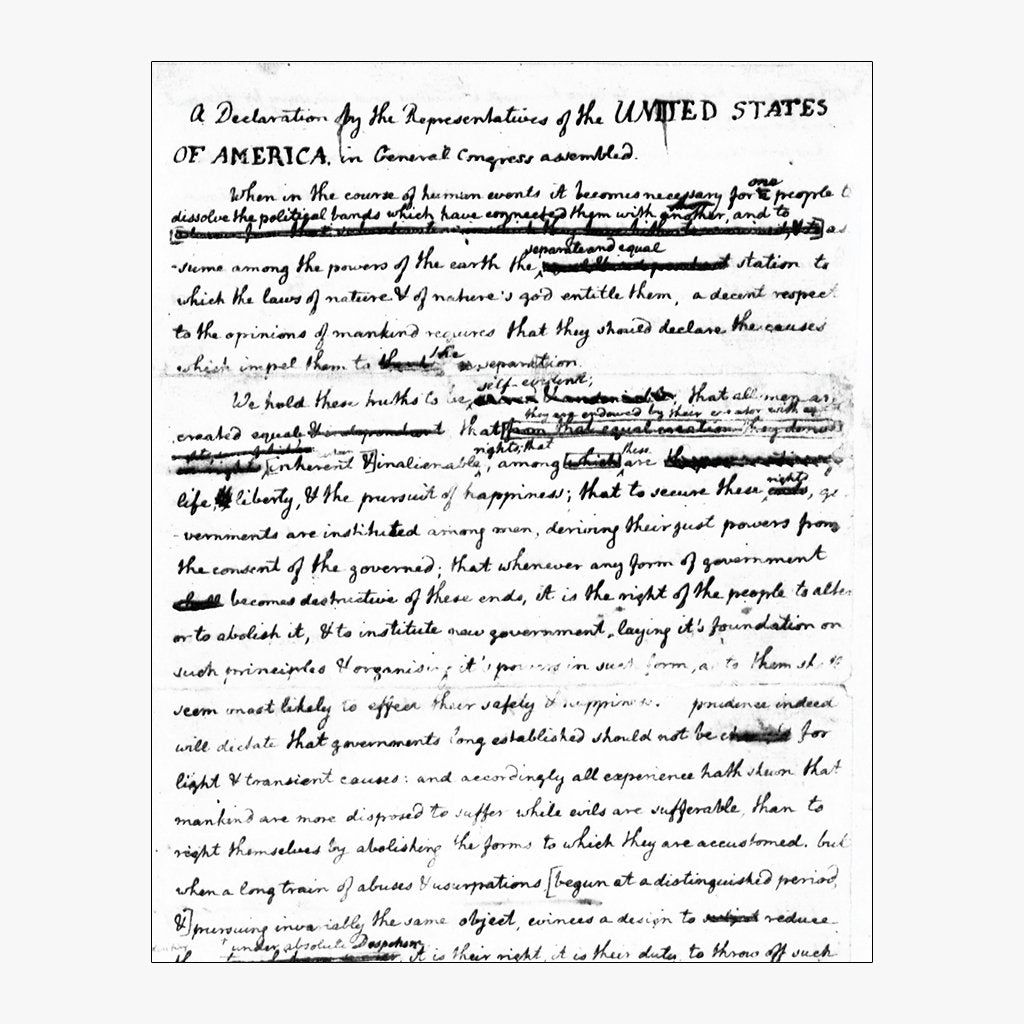 A Declaration by the Representatives of the UNITED STATES
OF AMERICA, in General Congress assembled.
one
When in the course of human events it becomes necessary for people t
dissolve the political bands which have connected them with another, and to
as
separate and equal
-sume among the powers of the earth the station to
which the laws of nature & of nature's god entitle them, a decent respect
to the opinions of mankind requires that they should declare the causes
the
which impel them to separation.
self-evident;
We hold these truths to be that all men ar
they are endowed by their creator with
created equal & independent that [from that equal creation they derive
rights; that
these
[inherent &] inalienable, among [which] are
rights
life, & liberty, & the pursuit of happiness; that to secure these ends, go
-vernments are instituted among men, deriving their just powers from
the consent of the governed; that whenever any form of government
shall becomes destructive of these ends, it is the right of the people to alter
or to abolish it, & to institute new government, laying it's foundation on
such principles & organising it's powers in such form, as to them shall
seem most likely to effect their safety & happiness. prudence indeed
will dictate that governments long established should not be for
light & transient causes: and accordingly all experience hath shewn that
mankind are more disposed to suffer while evils are sufferable, than to
right themselves by abolishing the forms to which they are accustomed. but
when a long train of abuses & usurpations [begun at a distinguished period,
&] pursuing invariably the same object, evinces a design to reduce
under absolute Despotism
it is their right, it is their duty, to throw off such